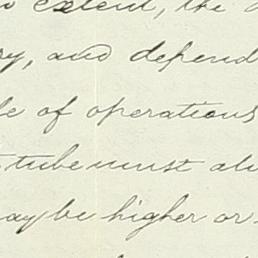 extent, the
and depend
of operations
tube must al
may be higher or